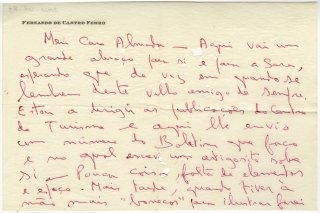 FERNANDO DE CASTRO FERRO
Meu Caro Almada — Aqui vai um
grande abraço para si e para a Sara,
esperando que de vez em quando se
lembrem deste velho amigo de sempre.
Estou a dirigir as publicações do Centro
de Turismo e aqui lhe envio
um número do Boletim que faço
e no qual escrevi um artiguito sobre
si — Pouca coisa, falta de elementos
e espaço. Mais tarde, quando tiver à
mão mais "bonecos" para ilustrar farei